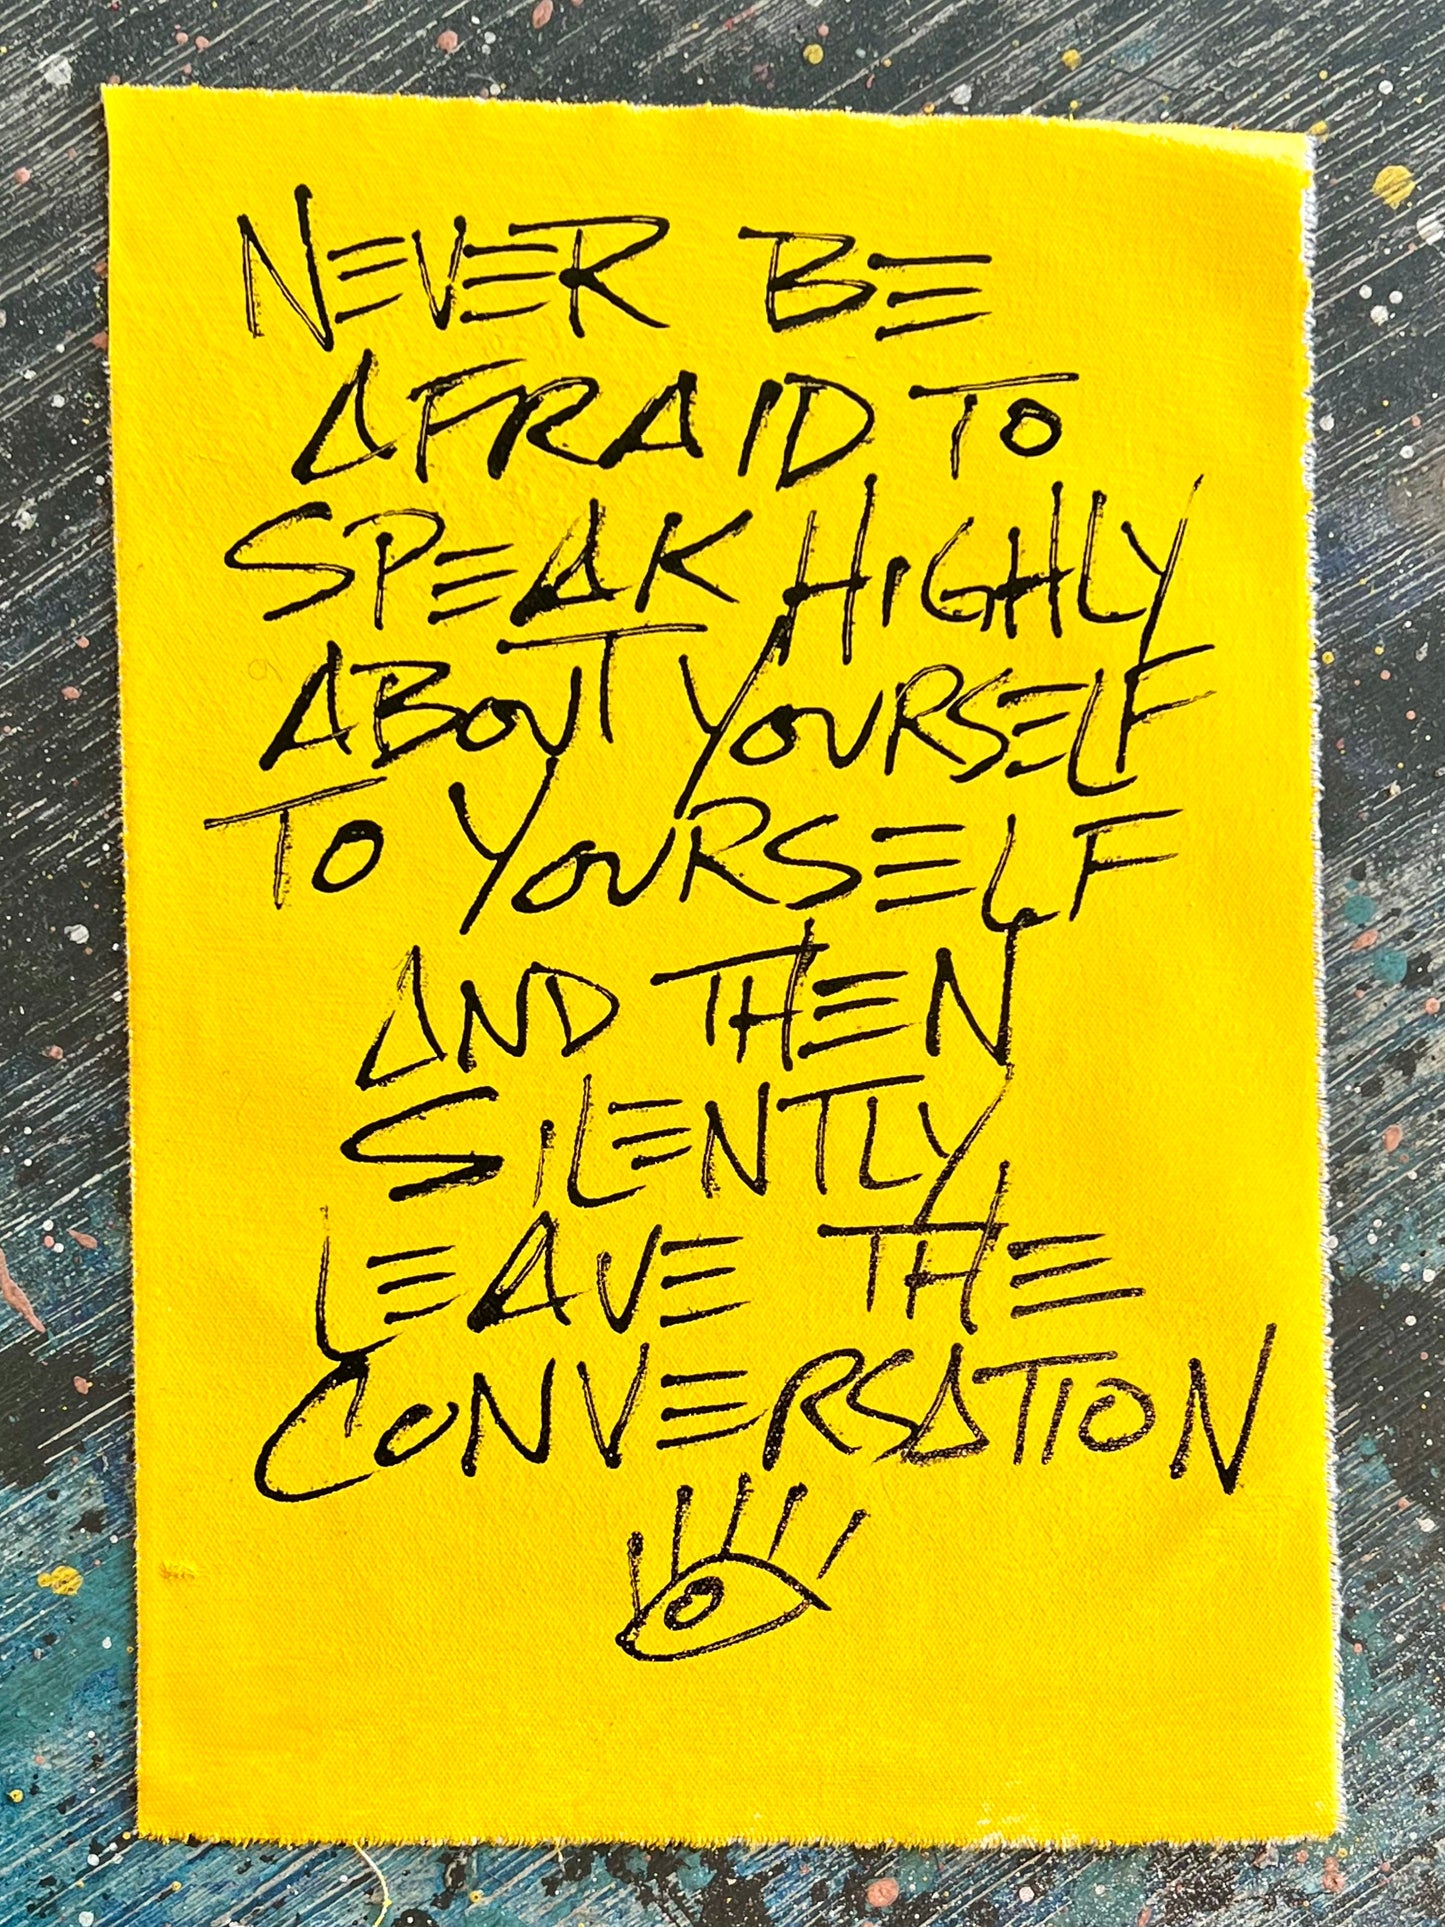 NEVER BE
AFRAID TO
SPEAK HIGHLY
ABOUT YOURSELF
TO YOURSELF
AND THEN
SILENTLY
LEAVE THE
CONVERSATION